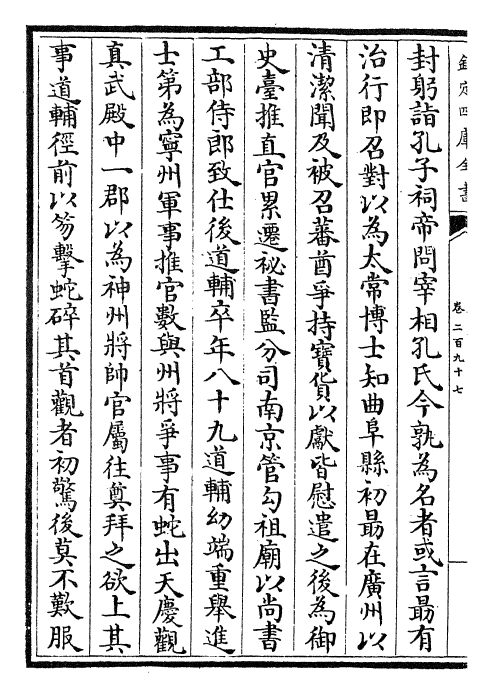 欽定四庫全書
卷二百九十七
封躬詣孔子祠帝問宰相孔氏今孰為名者或言勗有
治行即召對以為太常博士知曲阜縣初勗在廣州以
清潔聞及被召蕃酋爭持寶貨以獻皆慰遣之後為御
史臺推直官累遷祕書監分司南京管勾祖廟以尚書
工部侍郎致仕後道輔卒年八十九道輔幼端重舉進
士第為寧州軍事推官數與州將爭事有蛇出天慶觀
真武殿中一郡以為神州將帥官屬往奠拜之欲上其
事道輔徑前以笏擊蛇碎其首觀者初驚後莫不歎服